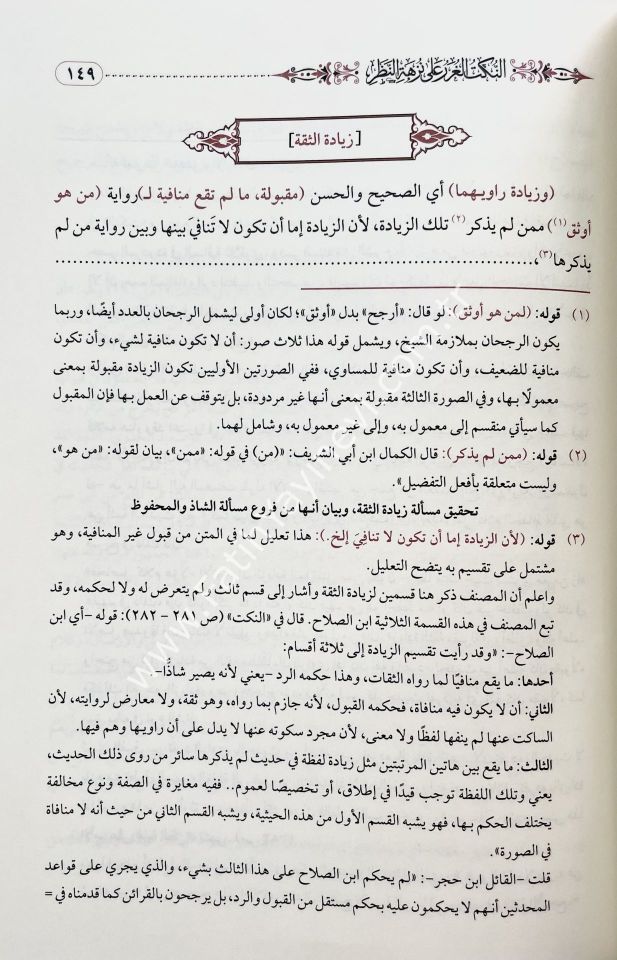 النكت الغرر على نزهة النظر
١٤٩
[زيادة الثقة]
(وزيادة راويهما) أي الصحيح والحسن (مقبولة، ما لم تقع منافية لـ)رواية (من هو
أوثق(١)) ممن لم يذكر(٢) تلك الزيادة، لأن الزيادة إما أن تكون لا تَنافيَ بينها وبين رواية من لم
يذكرها(٣)، ........................................
(١) قوله: (لمن هو أوثق): لو قال: «أرجح» بدل «أوثق»؛ لكان أولى ليشمل الرجحان بالعدد أيضًا، وربما
يكون الرجحان بملازمة الشيخ، ويشمل قوله هذا ثلاث صور: أن لا تكون منافية لشيء، وأن تكون
منافية للضعيف، وأن تكون منافية للمساوي، ففي الصورتين الأوليين تكون الزيادة مقبولة بمعنى
معمولًا بـها، وفي الصورة الثالثة مقبولة بمعنى أنـها غير مردودة، بل يتوقف عن العمل بـها فإن المقبول
كما سيأتي منقسم إلى معمول به، وإلى غير معمول به، وشامل لهما.
(٢) قوله: (ممن لم يذكر): قال الكمال ابن أبي الشريف: «(من) في قوله: «ممن»، بيان لقوله: «من هو»،
وليست متعلقة بأفعل التفضيل».
تحقيق مسألة زيادة الثقة، وبيان أنـها من فروع مسألة الشاذ والمحفوظ
(٣) قوله: (لأن الزيادة إما أن تكون لا تنافيَ إلخ.): هذا تعليل لما في المتن من قبول غير المنافية، وهو
مشتمل على تقسيم به يتضح التعليل.
واعلم أن المصنف ذكر هنا قسمين لزيادة الثقة وأشار إلى قسم ثالث ولم يتعرض له ولا لحكمه، وقد
تبع المصنف في هذه القسمة الثلاثية ابن الصلاح. قال في «النكت» (ص ٢٨١ – ٢٨٢): قوله –أي ابن
الصلاح–: «وقد رأيت تقسيم الزيادة إلى ثلاثة أقسام:
أحدها: ما يقع منافيًا لما رواه الثقات، وهذا حكمه الرد –يعني لأنه يصير شاذًّا–.
الثاني: أن لا يكون فيه منافاة، فحكمه القبول، لأنه جازم بما رواه، وهو ثقة، ولا معارض لروايته، لأن
الساكت عنها لم ينفها لفظًا ولا معنى، لأن مجرد سكوته عنها لا يدل على أن راويـها وهم فيها.
الثالث: ما يقع بين هاتين المرتبتين مثل زيادة لفظة في حديث لم يذكرها سائر من روى ذلك الحديث،
يعني وتلك اللفظة توجب قيدًا في إطلاق، أو تخصيصًا لعموم.. ففيه مغايرة في الصفة ونوع مخالفة
يختلف الحكم بـها، فهو يشبه القسم الأول من هذه الحيثية، ويشبه القسم الثاني من حيث أنه لا منافاة
في الصورة».
قلت –القائل ابن حجر–: «لم يحكم ابن الصلاح على هذا الثالث بشيء، والذي يجري على قواعد
المحدثين أنـهم لا يحكمون عليه بحكم مستقل من القبول والرد، بل يرجحون بالقرائن كما قدمناه في =